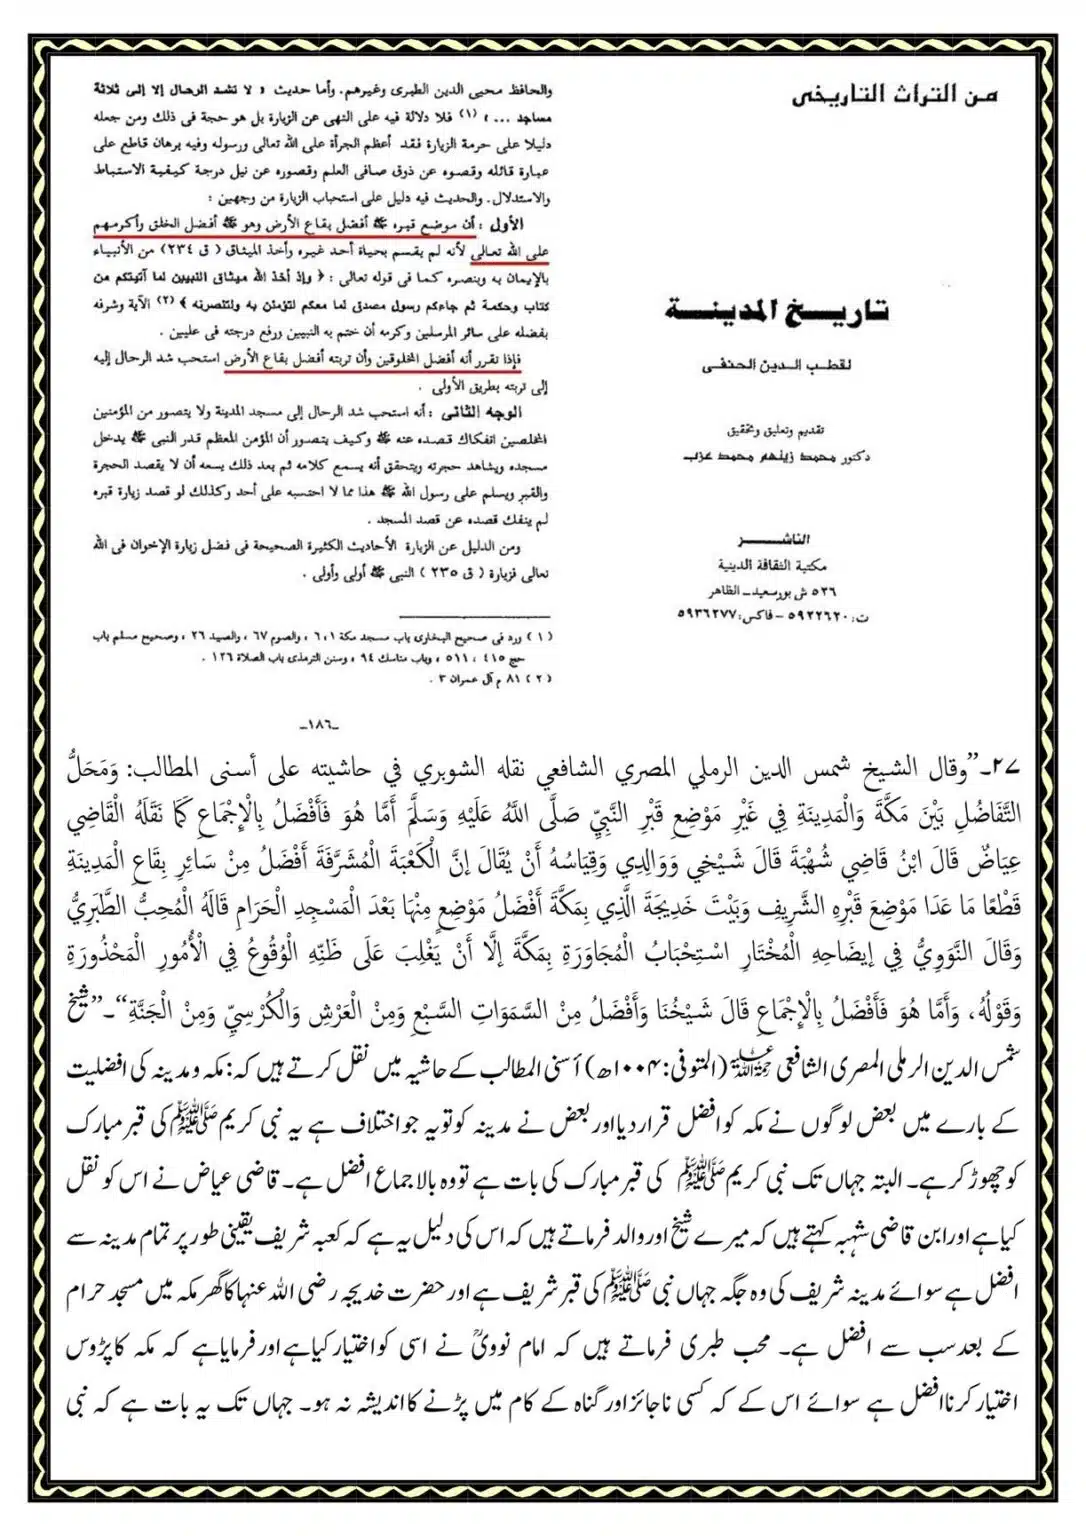 من التراث التاريخى
تاريخ المدينة
لقطب الدين الحنفى
تقديم وتعليق وتحقيق
دكتور محمد زينهم محمد عزب
الناشر
مكتبة الثقافة الدينية
٥٣٦ ش بورسعيد - الظاهر
ت: ٥٩٢٢٦٢٠ - فاكس: ٥٩٣٦٢٧٧
والحافظ محيى الدين الطبرى وغيرهم. وأما حديث « لا تشد الرحال إلا إلى ثلاثة
مساجد ... » (١) فلا دلالة فيه على النهى عن الزيارة بل هو حجة فى ذلك ومن جعله
دليلا على حرمة الزيارة فقد أعظم الجرأة على الله تعالى ورسوله وفيه برهان قاطع على
عبارة قائله وقصوه عن ذوق صافى العلم وقصوره عن نيل درجة كيفية الاستباط
والاستدلال. والحديث فيه دليل على استحباب الزيارة من وجهين :
الأول : أن موضع قبره ﷺ أفضل بقاع الأرض وهو ﷺ أفضل الخلق وأكرمهم
على الله تعالى لأنه لم يقسم بحياة أحد غيره وأخذ الميثاق ( ق ٢٣٤ ) من الأنبياء
بالإيمان به وبنصره كما فى قوله تعالى : ﴿ وإذ أخذ الله ميثاق النبيين لما آتيتكم من
كتاب وحكمة ثم جاءكم رسول مصدق لما معكم لتؤمنن به ولتنصرنه ﴾ (٢) الآية وشرفه
بفضله على سائر المرسلين وكرمه أن ختم به النبيين ورفع درجته فى عليين .
فإذا تقرر أنه أفضل المخلوقين وأن تربته أفضل بقاع الأرض استحب شد الرحال إليه
إلى تربته بطريق الأولى .
الوجه الثانى : أنه استحب شد الرحال إلى مسجد المدينة ولا يتصور من المؤمنين
المخلصين انفكاك قصده عنه ﷺ وكيف يتصور أن المؤمن المعظم قدر النبى ﷺ يدخل
مسجده ويشاهد حجرته ويتحقق أنه يسمع كلامه ثم بعد ذلك يسعه أن لا يقصد الحجرة
والقبر ويسلم على رسول الله ﷺ هذا مما لا احتسبه على أحد وكذلك لو قصد زيارة قبره
لم ينفك قصده عن قصد المسجد .
ومن الدليل عن الزيارة الأحاديث الكثيرة الصحيحة فى فضل زيارة الإخوان فى الله
تعالى فزيارة ( ق ٢٣٥ ) النبى ﷺ أولى وأولى .
( ١ ) ورد فى صحيح البخارى باب مسجد مكة ٦،١ ، والصوم ٦٧ ، والصيد ٢٦ ، وصحيح مسلم باب
حج ٤١٥ ، ٥١١ ، وباب مناسك ٩٤ ، وسنن الترمذى باب الصلاة ١٢٦ .
( ٢ ) ٨١ م آل عمران ٣ .
ـ١٨٦ـ
۲۷۔”وقال الشيخ شمس الدين الرملي المصري الشافعي نقله الشوبري في حاشيته على أسنى المطالب: وَمَحَلُّ
التَّفَاضُلِ بَيْنَ مَكَّةَ وَالْمَدِينَةِ فِي غَيْرِ مَوْضِعِ قَبْرِ النَّبِيِّ صَلَّى اللَّهُ عَلَيْهِ وَسَلَّمَ أَمَّا هُوَ فَأَفْضَلُ بِالْإِجْمَاعِ كَمَا نَقَلَهُ الْقَاضِي
عِيَاضٌ قَالَ ابْنُ قَاضِي شُهْبَةَ قَالَ شَيْخِي وَوَالِدِي وَقِيَاسُهُ أَنْ يُقَالَ إنَّ الْكَعْبَةَ الْمُشَرَّفَةَ أَفْضَلُ مِنْ سَائِرِ بِقَاعِ الْمَدِينَةِ
قَطْعًا مَا عَدَا مَوْضِعَ قَبْرِهِ الشَّرِيفِ وَبَيْتَ خَدِيجَةَ الَّذِي بِمَكَّةَ أَفْضَلُ مَوْضِعٍ مِنْهَا بَعْدَ الْمَسْجِدِ الْحَرَامِ قَالَهُ الْمُحِبُّ الطَّبَرِيُّ
وَقَالَ النَّوَوِيُّ فِي إيضَاحِهِ الْمُخْتَارِ اسْتِحْبَابُ الْمُجَاوَرَةِ بِمَكَّةَ إلَّا أَنْ يَغْلِبَ عَلَى ظَنِّهِ الْوُقُوعُ فِي الْأُمُورِ الْمَحْذُورَةِ
وَقَوْلُهُ، وَأَمَّا هُوَ فَأَفْضَلُ بِالْإِجْمَاعِ قَالَ شَيْخُنَا وَأَفْضَلُ مِنْ السَّمَوَاتِ السَّبْعِ وَمِنْ الْعَرْشِ وَالْكُرْسِيِّ وَمِنْ الْجَنَّةِ“۔”شیخ
شمس الدین الرملی المصری الشافعی رحمۃ اللہ علیہ (المتوفی:۱۰۰۴ھ) أسنی المطالب کے حاشیہ میں نقل کرتے ہیں کہ: مکہ و مدینہ کی افضلیت
کے بارے میں بعض لوگوں نے مکہ کو افضل قرار دیا اور بعض نے مدینہ کو تو یہ جو اختلاف ہے یہ نبی کریم ﷺ کی قبر مبارک
کو چھوڑ کر ہے۔ البتہ جہاں تک نبی کریم ﷺ کی قبر مبارک کی بات ہے تو وہ بالاجماع افضل ہے۔ قاضی عیاض نے اس کو نقل
کیا ہے اور ابن قاضی شہبہ کہتے ہیں کہ میرے شیخ اور والد فرماتے ہیں کہ اس کی دلیل یہ ہے کہ کعبہ شریف یقینی طور پر تمام مدینہ سے
افضل ہے سوائے مدینہ شریف کی وہ جگہ جہاں نبی ﷺ کی قبر شریف ہے اور حضرت خدیجہ رضی اللہ عنہا کا گھر مکہ میں مسجد حرام
کے بعد سب سے افضل ہے۔ محب طبری فرماتے ہیں کہ امام نوویؒ نے اسی کو اختیار کیا ہے اور فرمایا ہے کہ مکہ کا پڑوس
اختیار کرنا افضل ہے سوائے اس کے کہ کسی ناجائز اور گناہ کے کام میں پڑنے کا اندیشہ نہ ہو۔ جہاں تک یہ بات ہے کہ نبی